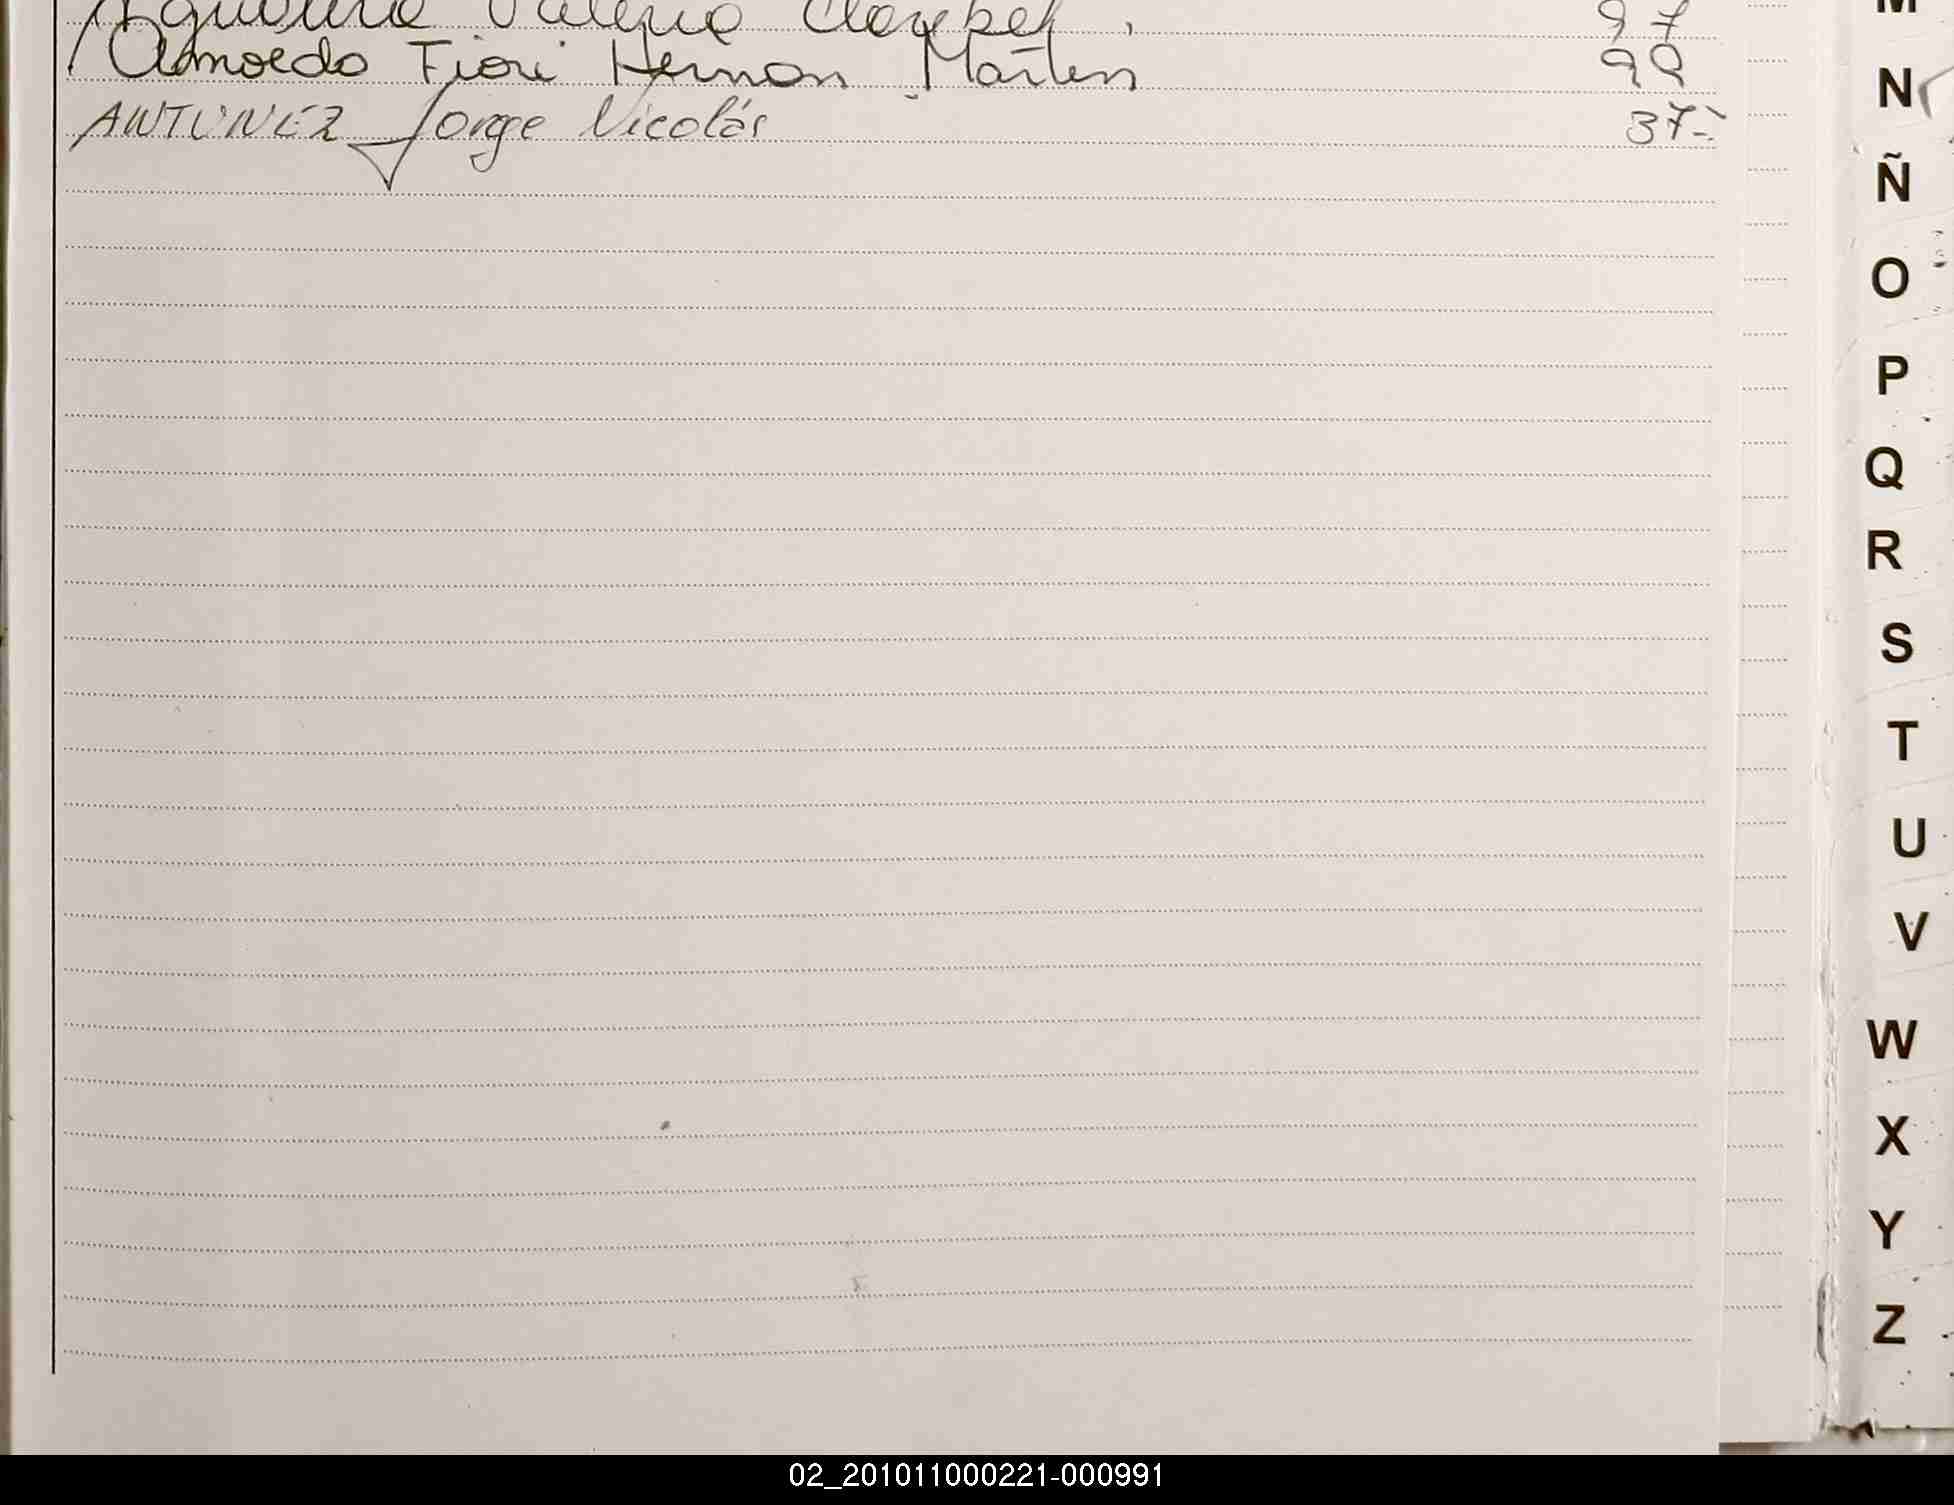 Valeria 97
Amoedo Fiori Hernan Martin 98
ANTUNEZ Jorge Nicolás 37-
M
N
Ñ
O
P
Q
R
S
T
U
V
W
X
Y
Z
02_201011000221-000991